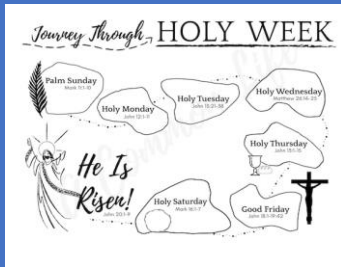 Journey Through HOLY WEEK
Palm Sunday
Mark 11:1-10
Holy Monday
John 12:1-11
Holy Tuesday
John 13:21-38
Holy Wednesday
Matthew 26:14-25
Holy Thursday
John 13:1-15
Good Friday
John 18:1-19:42
Holy Saturday
Mark 16:1-7
He Is
Risen!
John 20:1-9